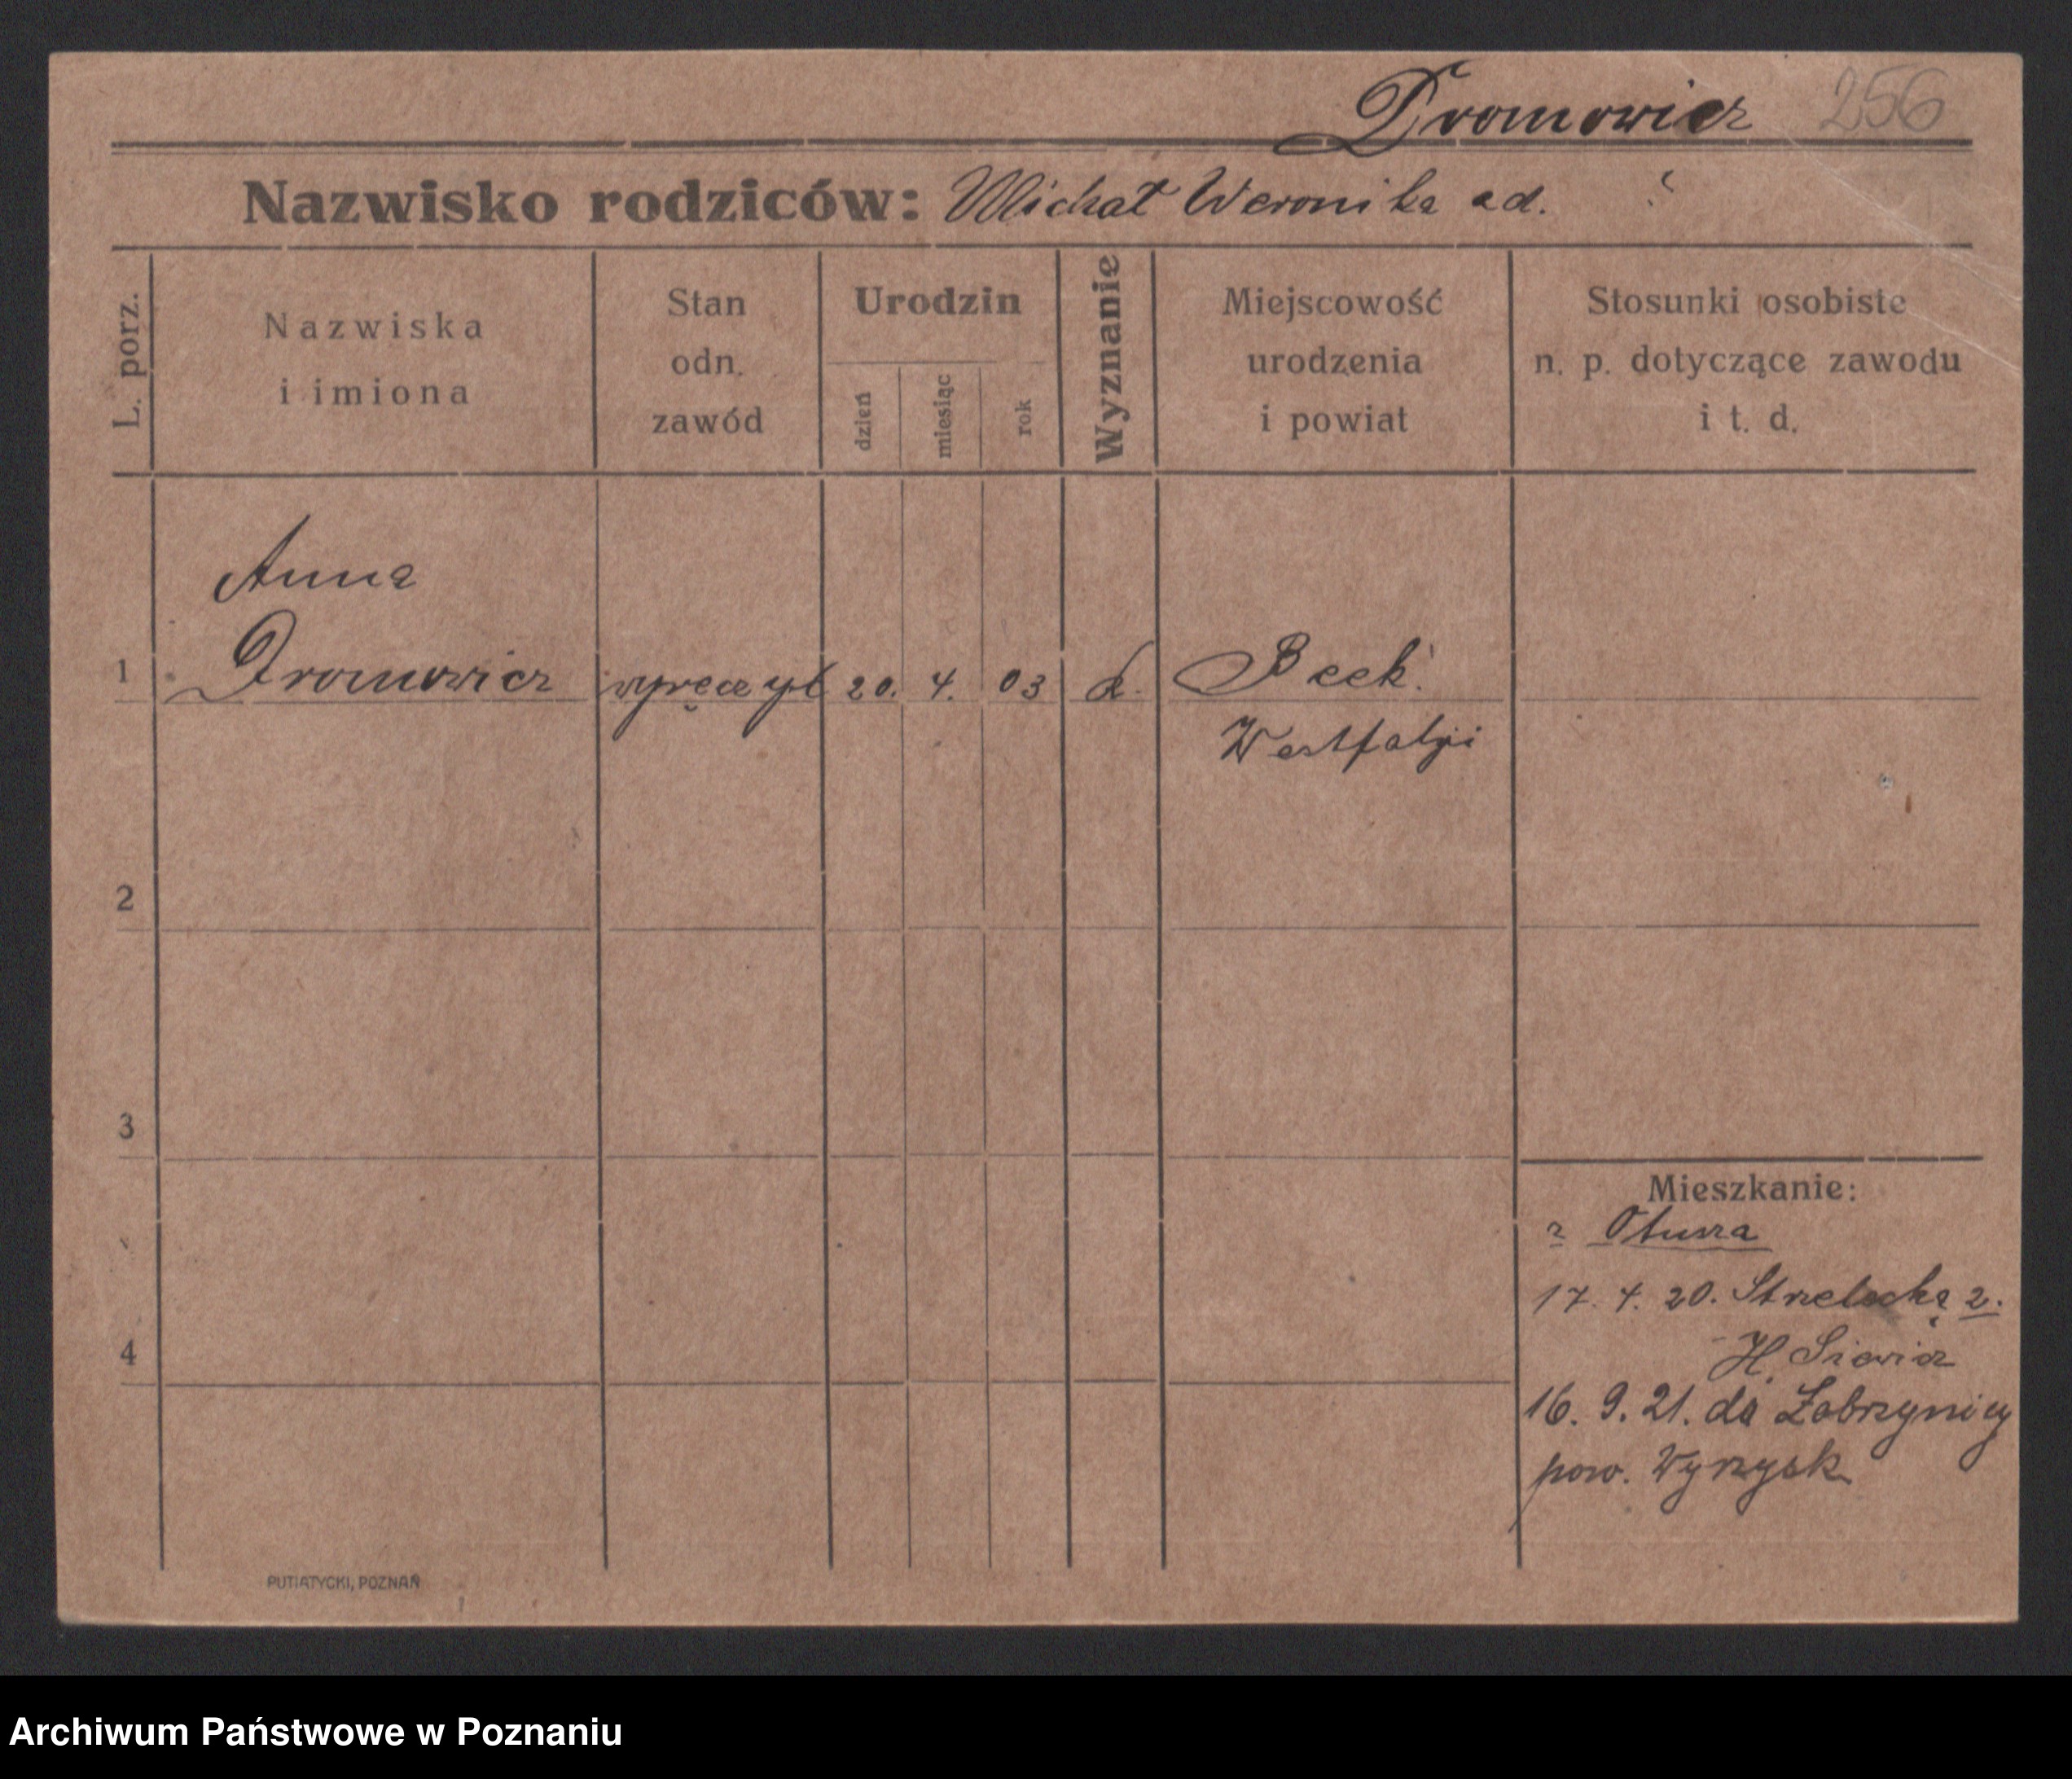 Dromowicz 256
Nazwisko rodziców: Michał Weronika ad. ?
L. porz.
Nazwiska
i imiona
Stan
odn.
zawód
Urodzin
dzień
miesiąc
rok
Wyznanie
Miejscowość
urodzenia
i powiat
Stosunki osobiste
n. p. dotyczące zawodu
i t. d.
Anna
1 Dromowicz wyręczyt 20. 4. 03 k. Beek
Westfalji
2
3
4
Mieszkanie:
z Otusza
17. 4. 20. Strzelecka 2.
H. Siewicz
16. 9. 21. do Żabrzynicy
pow. Wyrzysk
PUTIATYCKI, POZNAŃ
Archiwum Państwowe w Poznaniu